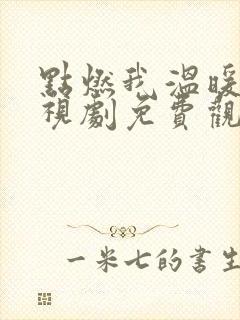 點燃我溫暖
視劇免費觀
一米七的書生